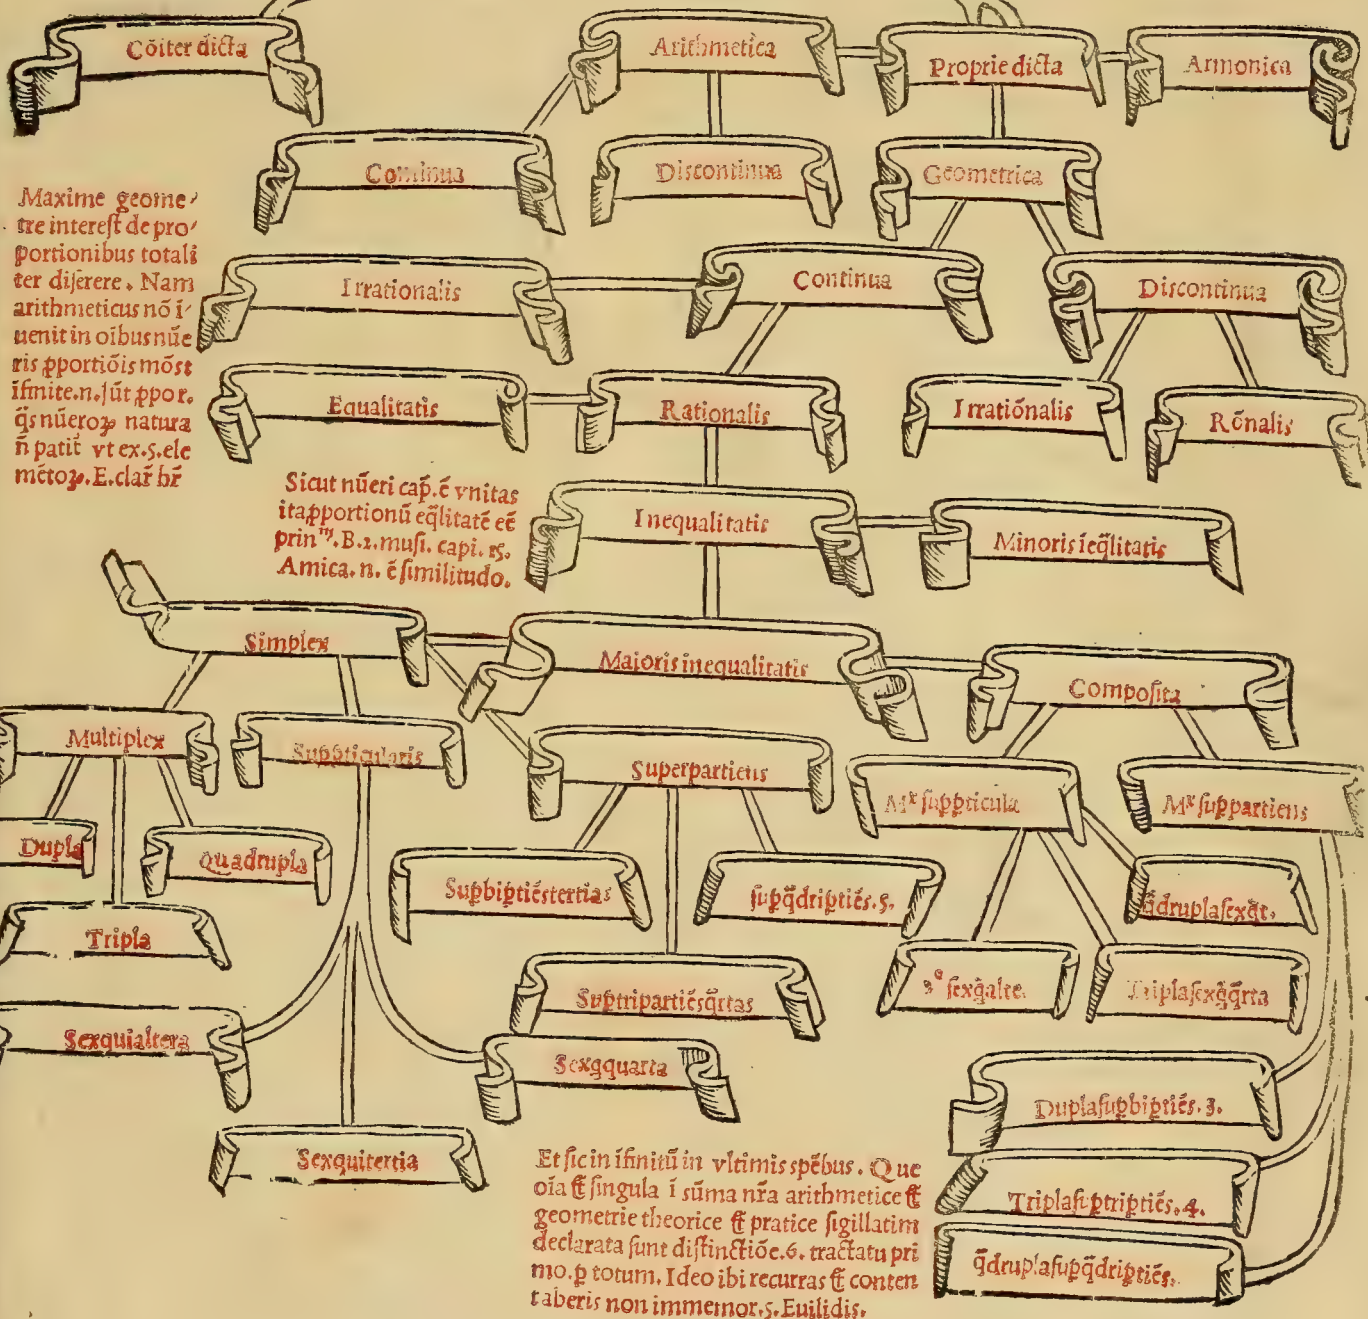 Cōiter dicta
Arithmetica
Proprie dicta
Armonica
Continua
Discontinua
Geometrica
Maxime geome⸗
tre interest de pro⸗
portionibus totali
ter diserere. Nam
arithmeticus nō ī⸗
uenit in oībus nūe
ris ꝓportiōis mōst
īfinite.n.sūt ꝓpor.
q̄s nūeroꝝ natura
n̄ patit vt ex.5.ele
mētoꝝ.E.clar̄ hr̄
Irrationalis
Continua
Discontinua
Equalitatis
Rationalis
Irratiōnalis
Rōnalis
Sicut nūeri cap̄.ē vnitas
ita ꝓportionū eq̄litatē eē
prin.B.2.musi. capi. 15.
Amica. n. ē similitudo.
Inequalitatis
Minoris īeq̄litatis
Simplex
Maioris inequalitatis
Composita
Multiplex
Suꝑꝑticularis
Superpartiens
Mˣ suꝑꝑticula
Mˣ suꝑpartiens
Dupla
Quadrupla
Suꝑbiꝑtiēs tertias
suꝑq̄driꝑtiēs.5.
q̄drupla sexq̄t.
Tripla
Suꝑtripartiēs q̄rtas
sexq̄alte.
Tripla sexq̄q̄rta
Sexquialtera
Sexq̄quarta
Dupla suꝑbiꝑtiēs.3.
Sexquitertia
Tripla suꝑtriꝑtiēs.4.
q̄drupla suꝑq̄driꝑtiēs.
Et sic in īfinitū in vltimis spēbus. Que
oīa ⁊ singula ī sūma nr̄a arithmetice ⁊
geometrie theorice ⁊ pratice sigillatim
declarata sunt distinctiōe.6. tractatu pri
mo.ꝑ totum. Ideo ibi recurras ⁊ conten
taberis non immemor.5.Euilidis.